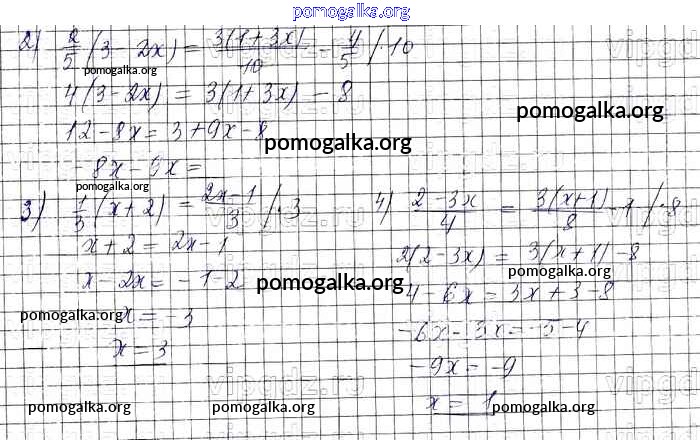 pomogalka.org
2) 2/5 (3 - 2x) = 3(1+3x)/10 - 4/5 /·10
pomogalka.org
4(3-2x) = 3(1+3x) - 8
pomogalka.org
12 - 8x = 3 + 9x - 8
pomogalka.org
-8x - 9x =
pomogalka.org
3) 1/3 (x+2) = 2x-1/3 /·3
x + 2 = 2x - 1
x - 2x = -1-2
pomogalka.org
pomogalka.org
-x = -3
x = 3
4) 2-3x/4 = 3(x+1)/8 - 1 /·8
2(2-3x) = 3(x+1) - 8
pomogalka.org
4 - 6x = 3x + 3 - 8
-6x - 3x = -5-4
-9x = -9
x = 1
pomogalka.org
pomogalka.org
pomogalka.org